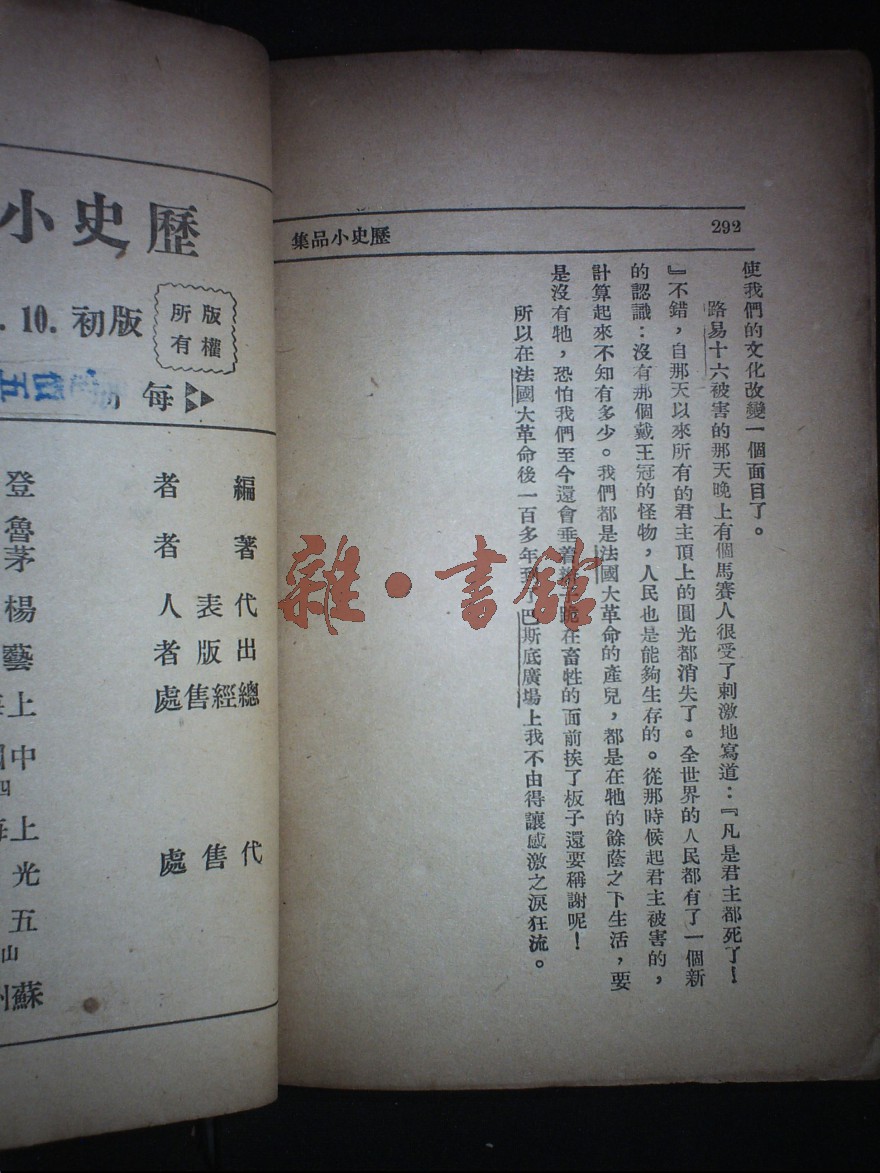 292
歷史小品集
使我們的文化改變一個面目了。
路易十六被害的那天晚上有個馬賽人很受了刺激地寫道：『凡是君主都死了！
』不錯，自那天以來所有的君主頂上的圓光都消失了。全世界的人民都有了一個新
的認識：沒有那個戴王冠的怪物，人民也是能夠生存的。從那時候起君主被害的，
計算起來不知有多少。我們都是法國大革命的產兒，都是在牠的餘蔭之下生活，要
是沒有牠，恐怕我們至今還會垂着跪在畜牲的面前挨了板子還要稱謝呢！
所以在法國大革命後一百多年到了巴斯底廣場上我不由得讓感激之淚狂流。
歷史小
版權所有
10. 初版
每
編者
登
著者
魯
茅
代表人
楊
出版者
藝
總經售處
上
中
四
上海
代售處
光
五
山
蘇州
雜·書館